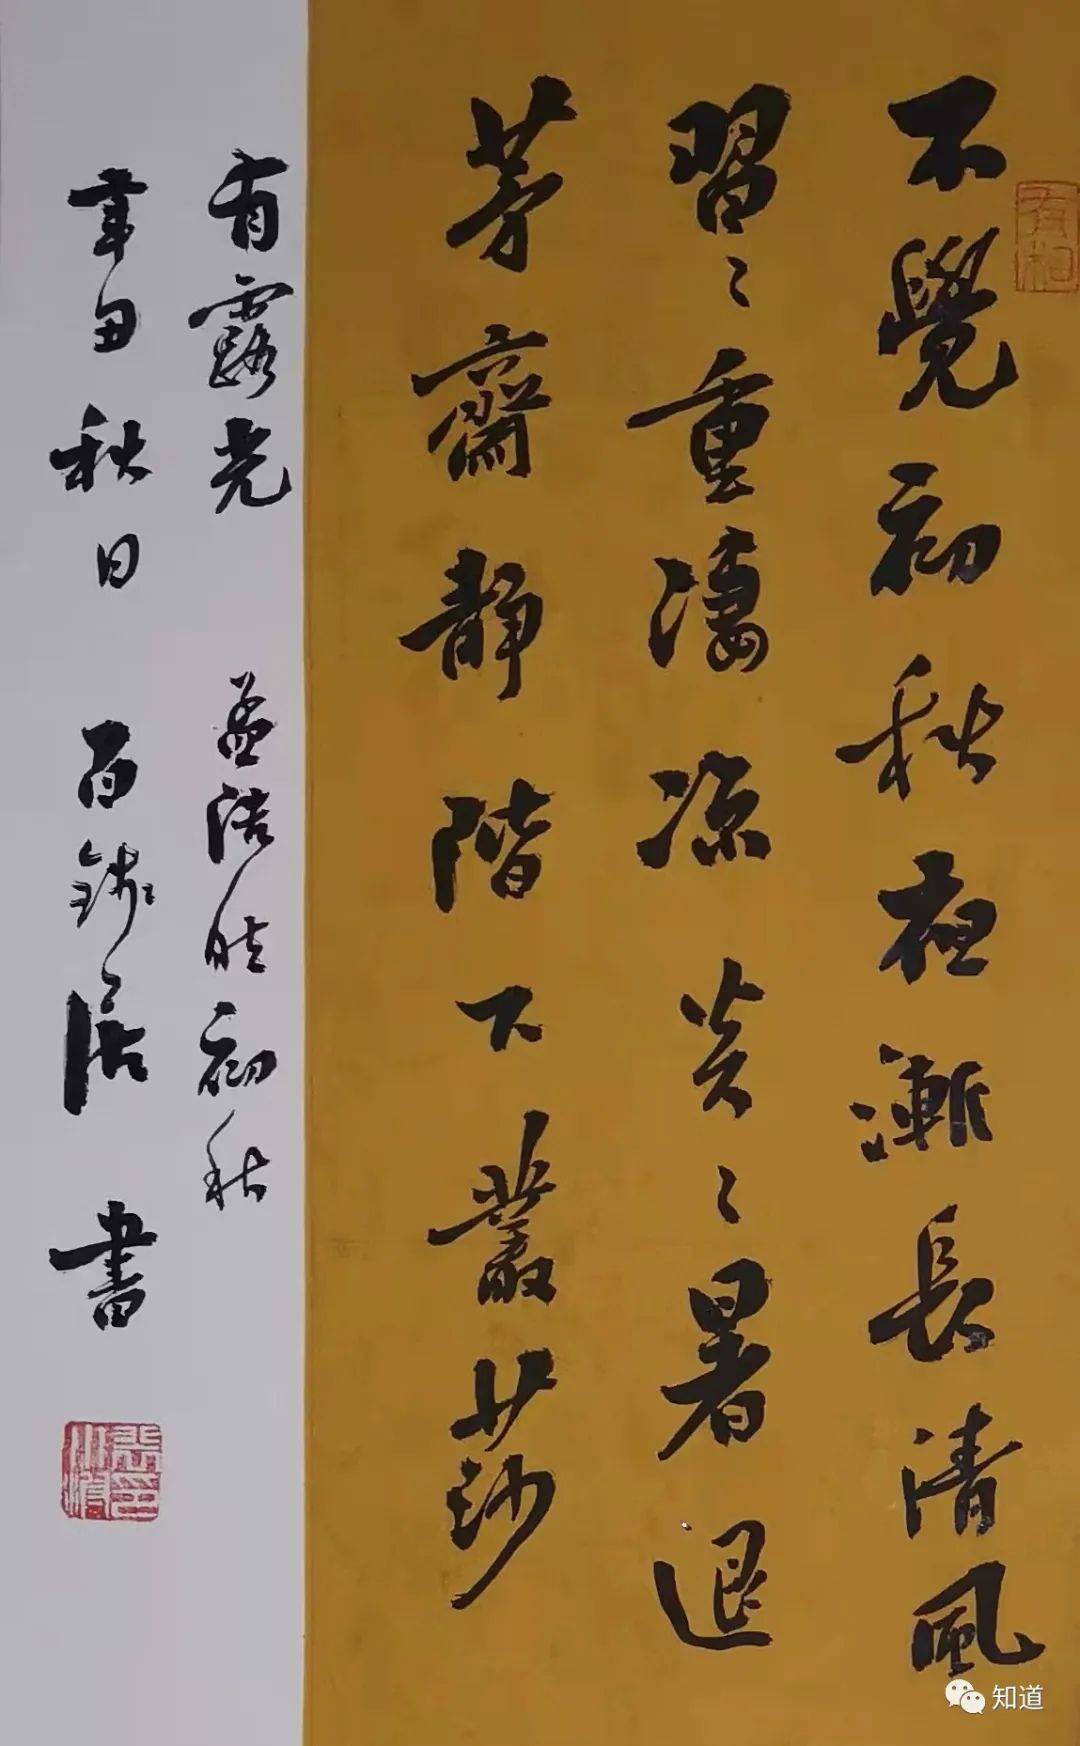 不覺初秋夜漸長清風
習〻重淒涼炎〻暑退
茅齋靜階下叢莎
有露光 孟浩然初秋
辛丑秋日 百居 書
知道